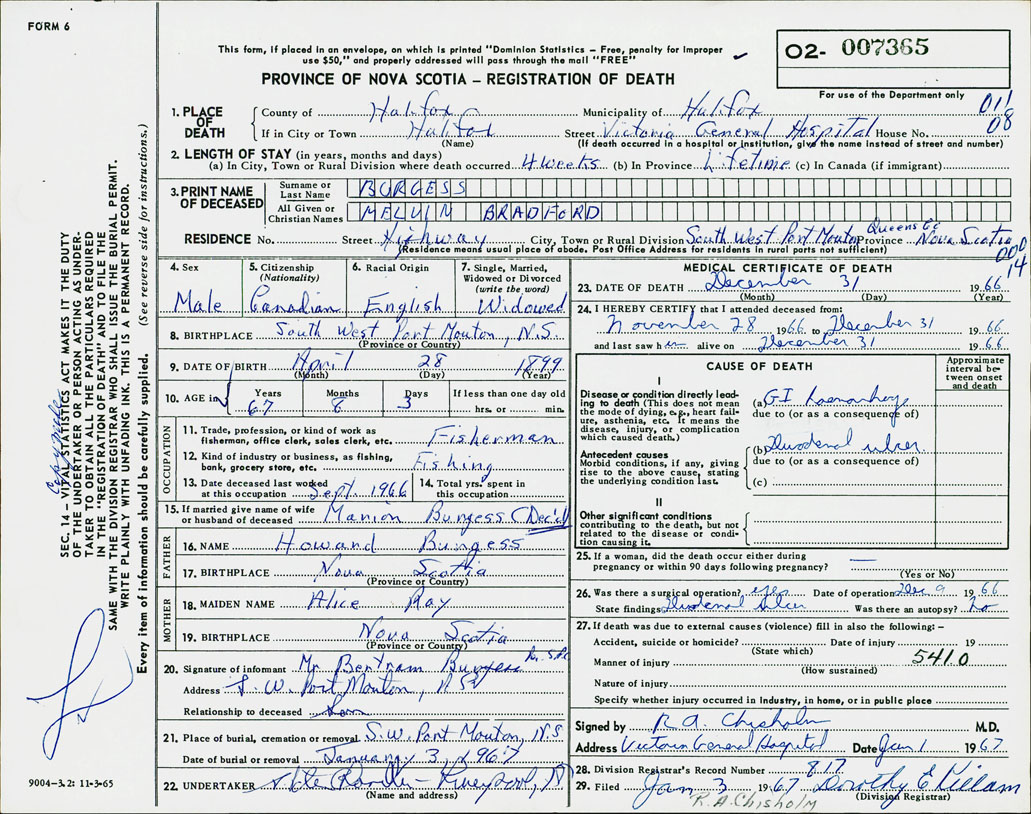 FORM 6
This form, if placed in an envelope, on which is printed "Dominion Statistics – Free, penalty for improper
use $50," and properly addressed will pass through the mail "FREE"
O2- 007365
PROVINCE OF NOVA SCOTIA – REGISTRATION OF DEATH
For use of the Department only
1. PLACE OF DEATH County of Halifax Municipality of Halifax 011
If in City or Town Halifax Street Victoria General Hospital House No. 08
(Name) (If death occurred in a hospital or institution, give the name instead of street and number)
2. LENGTH OF STAY (in years, months and days)
(a) In City, Town or Rural Division where death occurred 4 weeks (b) In Province Lifetime (c) In Canada (if immigrant)
3. PRINT NAME OF DECEASED Surname or Last Name BURGESS
All Given or Christian Names MELVIN BRADFORD
RESIDENCE No. Street Highway City, Town or Rural Division South West Port Mouton Queens Co Province Nova Scotia
(Residence means usual place of abode. Post Office Address for residents in rural parts not sufficient)
000
14
4. Sex Male
5. Citizenship (Nationality) Canadian
6. Racial Origin English
7. Single, Married, Widowed or Divorced (write the word) Widowed
8. BIRTHPLACE South West Port Mouton, N.S.
(Province or Country)
9. DATE OF BIRTH April 28 1899
(Month) (Day) (Year)
10. AGE in Years Months Days If less than one day old
67 8 3 hrs. or min.
OCCUPATION
11. Trade, profession, or kind of work as fisherman, office clerk, sales clerk, etc. Fisherman
12. Kind of industry or business, as fishing, bank, grocery store, etc. Fishing
13. Date deceased last worked at this occupation Sept. 1966
14. Total yrs. spent in this occupation
15. If married give name of wife or husband of deceased Marion Burgess (Dec'd)
FATHER
16. NAME Howard Burgess
17. BIRTHPLACE Nova Scotia
(Province or Country)
MOTHER
18. MAIDEN NAME Alice Ray
19. BIRTHPLACE Nova Scotia
(Province or Country)
20. Signature of informant Mr Bertram Burgess
Address S. W. Port Mouton, N.S.
Relationship to deceased Son
21. Place of burial, cremation or removal S.W. Port Mouton, N.S
Date of burial or removal January 3, 1967
22. UNDERTAKER
(Name and address)
MEDICAL CERTIFICATE OF DEATH
23. DATE OF DEATH December 31 1966
(Month) (Day) (Year)
24. I HEREBY CERTIFY that I attended deceased from:
November 28 1966 to December 31 1966
and last saw him alive on December 31 1966
CAUSE OF DEATH
Approximate interval between onset and death
I
Disease or condition directly leading to death (This does not mean the mode of dying, e.g., heart failure, asthenia, etc. It means the disease, injury, or complication which caused death.)
(a) GI haemorrhage
due to (or as a consequence of)
Antecedent causes
Morbid conditions, if any, giving rise to the above cause, stating the underlying condition last.
(b) Duodenal ulcer
due to (or as a consequence of)
(c)
II
Other significant conditions contributing to the death, but not related to the disease or condition causing it.
25. If a woman, did the death occur either during
pregnancy or within 90 days following pregnancy? —
(Yes or No)
26. Was there a surgical operation? yes Date of operation Dec 9 1966
State findings Duodenal ulcer Was there an autopsy? no
27. If death was due to external causes (violence) fill in also the following:–
Accident, suicide or homicide? Date of injury 19
(State which)
Manner of injury 541.0
(How sustained)
Nature of injury
Specify whether injury occurred in Industry, in home, or in public place
Signed by R A. Chisholm M.D.
Address Victoria General Hospital Date Jan 1 1967
28. Division Registrar's Record Number 817
29. Filed Jan 3 1967 Dorothy E Killam
(Division Registrar)
R.A.CHISHOLM
SEC. 14 – VITAL STATISTICS ACT MAKES IT THE DUTY
OF THE UNDERTAKER OR PERSON ACTING AS UNDER-
TAKER TO OBTAIN ALL THE PARTICULARS REQUIRED
IN THE "REGISTRATION OF DEATH" AND TO FILE THE
SAME WITH THE DIVISION REGISTRAR WHO SHALL ISSUE THE BURIAL PERMIT.
WRITE PLAINLY WITH UNFADING INK. THIS IS A PERMANENT RECORD.
Every item of information should be carefully supplied. (See reverse side for instructions.)
9004-3.2: 11-3-65